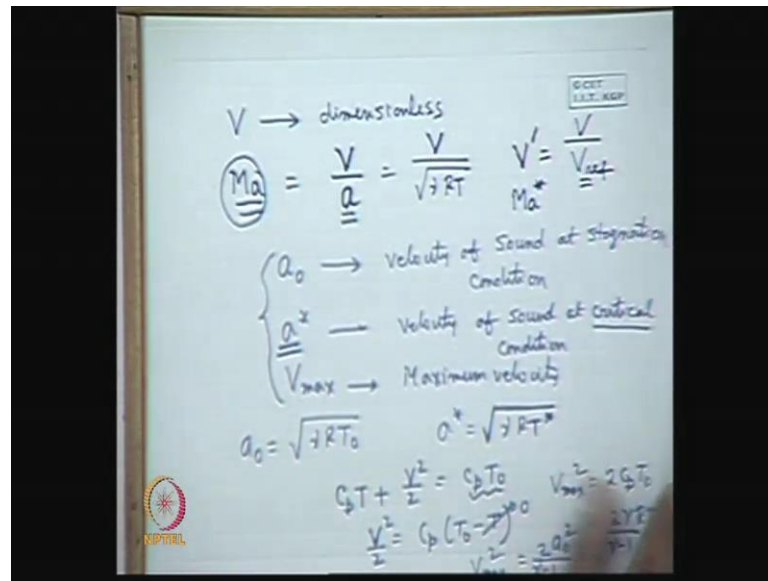 C CET
I.I.T. KGP
V → dimensionless
Ma = V/a = V/√γRT V' = V/V_ref
Ma*
a₀ → velocity of sound at stagnation
condition
a* — velocity of sound at critical
condition
V_max → Maximum velocity
a₀ = √γRT₀ a* = √γRT*
C_pT + V²/2 = C_pT₀ V_max² = 2C_pT₀
V²/2 = C_p(T₀ - T)→0
V_max² = 2a₀²/γ-1
NPTEL